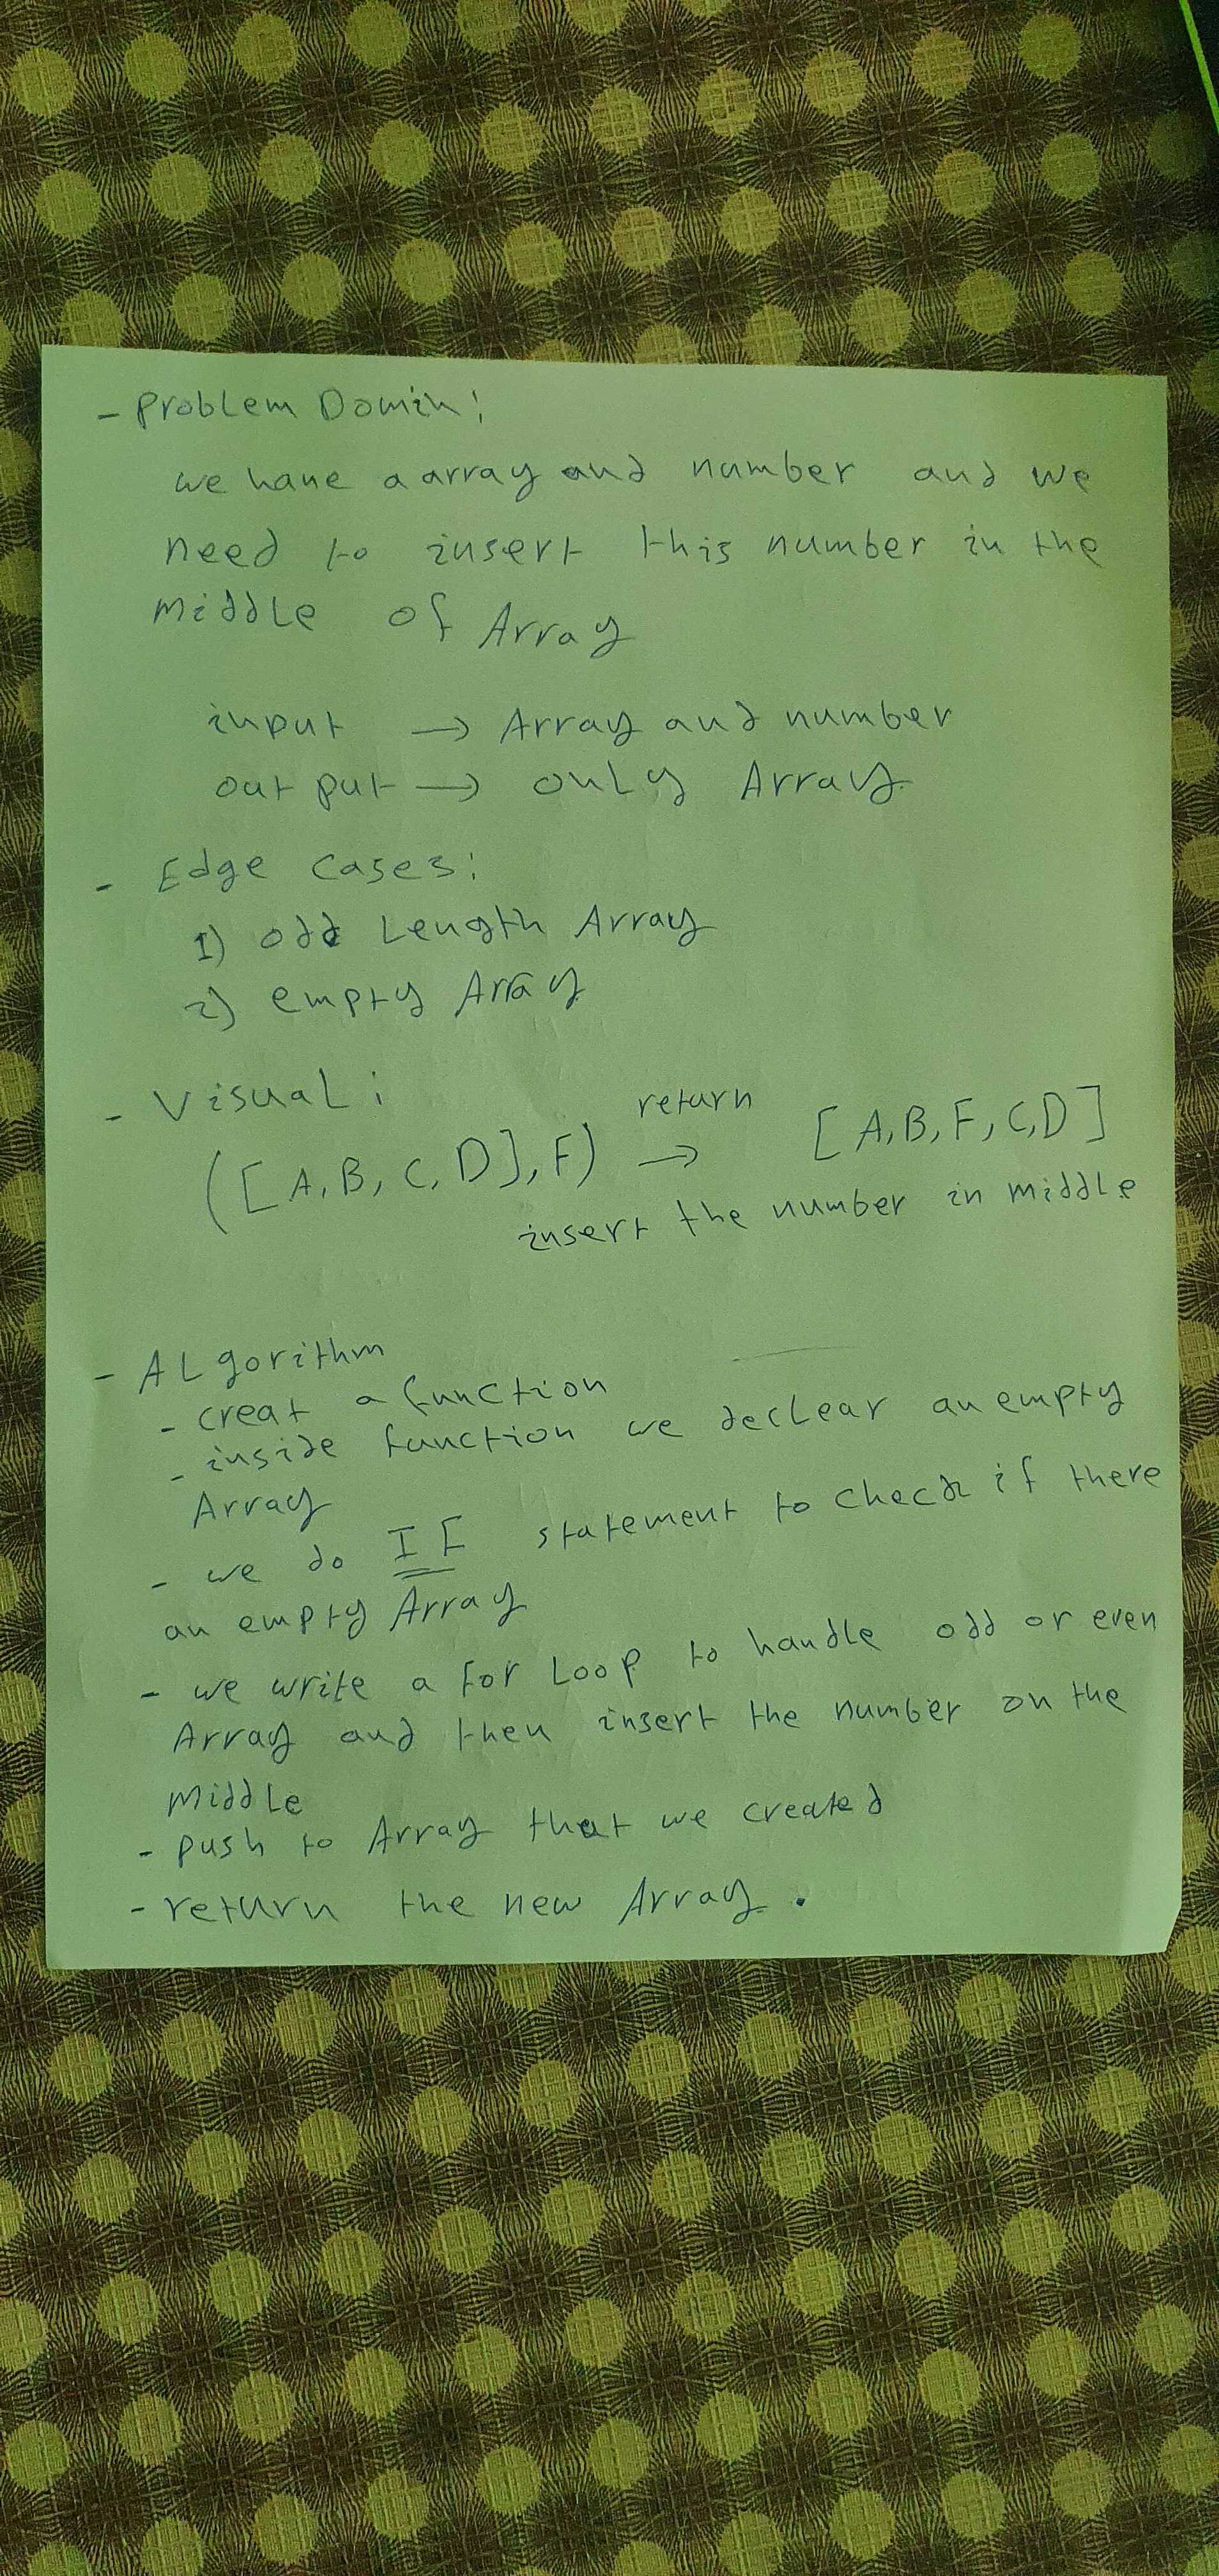 - Problem Domin:
we have a array and number and we
need to insert this number in the
middle of Array
input → Array and number
out put → only Array.
- Edge cases:
1) odd Length Array
2) empty Array
- Visual:
([A, B, C, D], F) return → [A, B, F, C, D]
insert the number in middle
- ALgorithm
- creat a function
- inside function we declear an empty
Array
- we do IF statement to check if there
an empty Array
- we write a for Loop to handle odd or even
Array and then insert the number on the
middle
- push to Array that we created
- return the new Array.